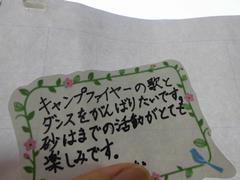 キャンプファイヤーの歌と
ダンスをがんばりたいです。
砂はまでの活動がとても
楽しみです。